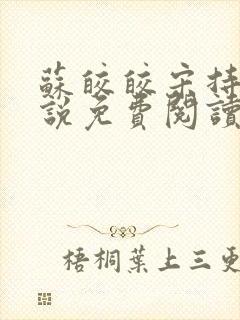 蘇皎皎宋持
說免費閱讀
梧桐葉上三更